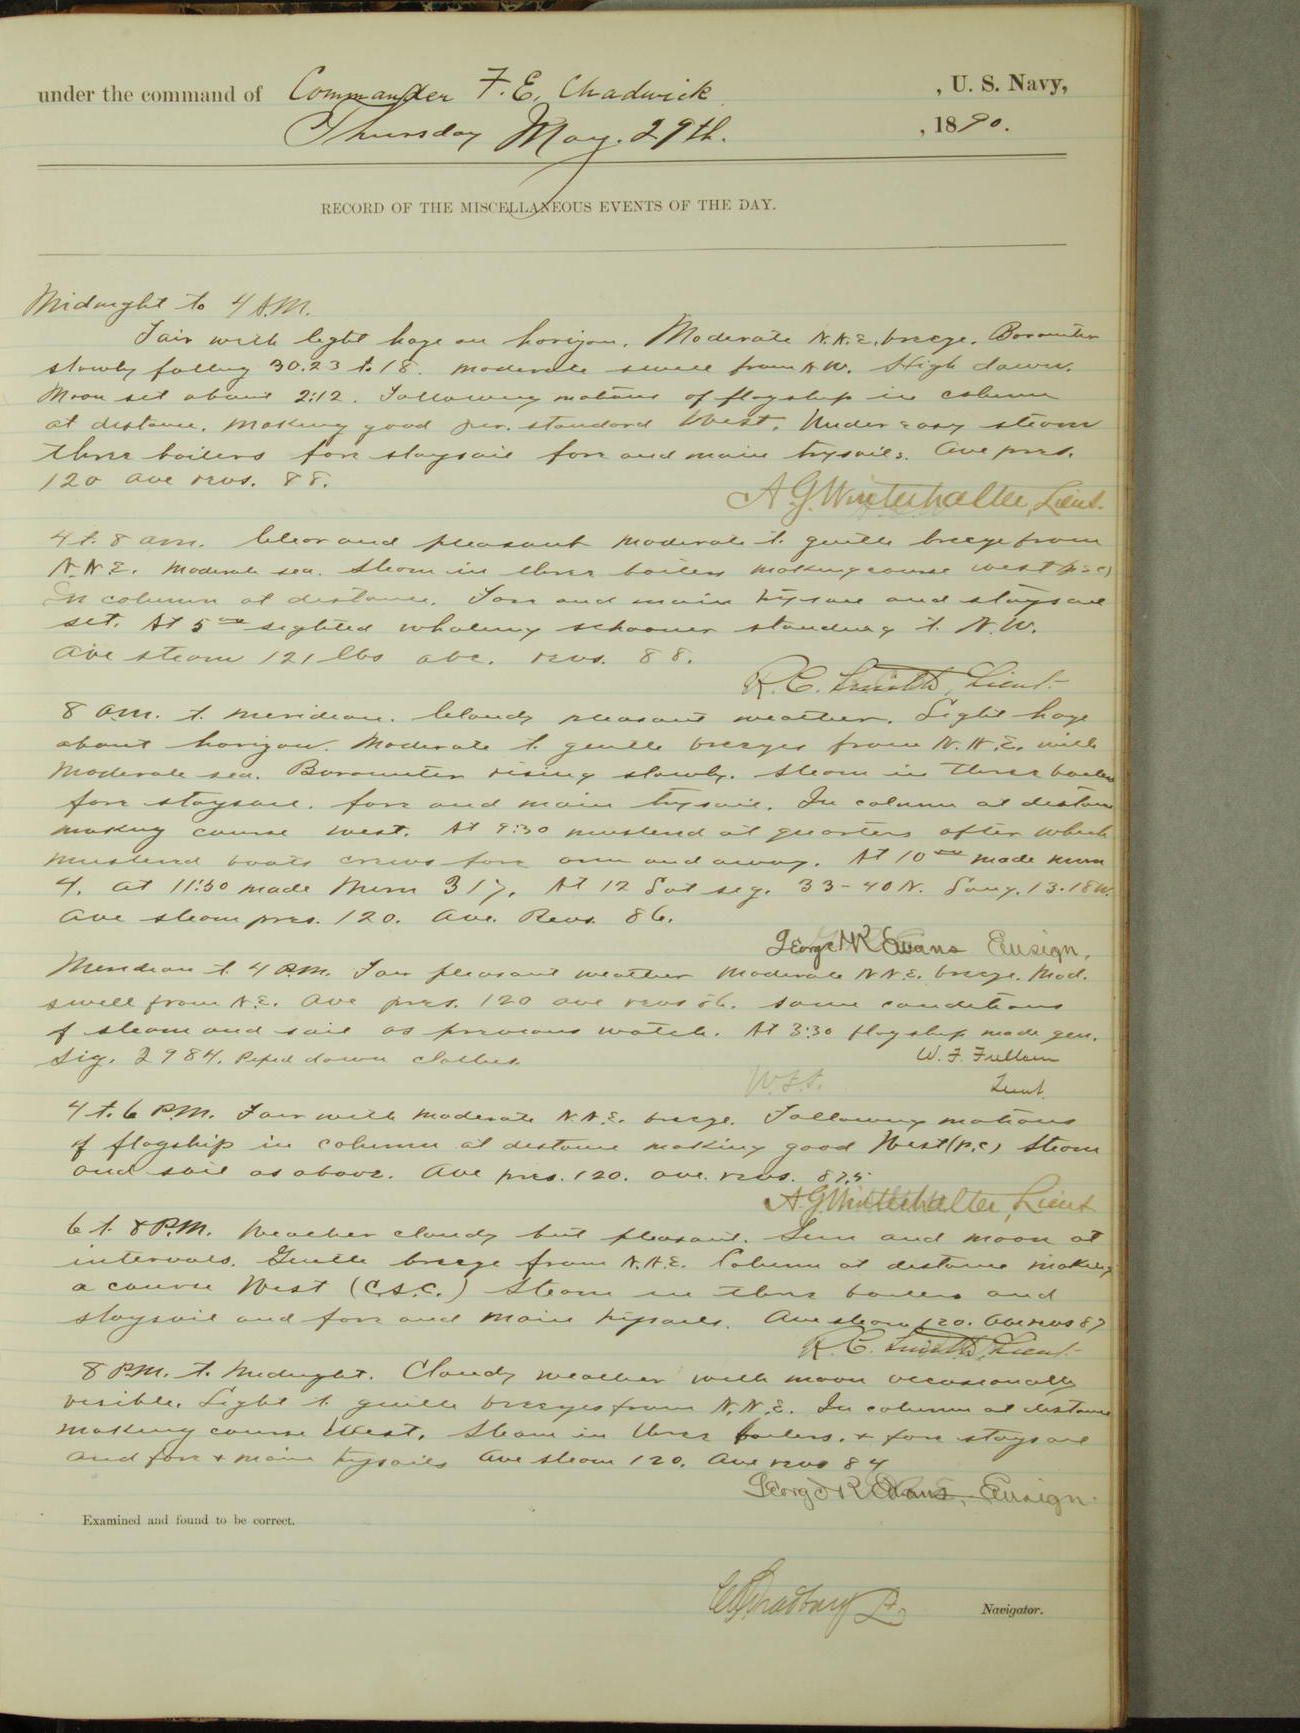 under the command of Commander F. E. Chadwick, U. S. Navy,
Thursday May. 29th. , 1890.
RECORD OF THE MISCELLANEOUS EVENTS OF THE DAY.
Midnight to 4 A.M.
Fair with light haze on horizon. Moderate N.N.E. breeze. Barometer
slowly falling 30.23 to 18. Moderate swell from N.W. High dawn.
Moon set about 2:12. Following motions of flagship in column
at distance. Making good per. standard West. Under easy steam
three boilers fore staysail fore and main trysails. Ave pres.
120 ave revs. 88.
A. G. Winterhalter, Lieut.
4 to 8 am. Clear and pleasant moderate to gentle breeze from
N.N.E. Moderate sea. Steam in three boilers making course west (p.c)
In column at distance. Fore and main trysail and staysail
set. At 5 sighted whaling schooner standing to N.W.
Ave steam 121 lbs ave. revs. 88.
R. C. Smith, Lieut.
8 a.m. to meridian. Cloudy pleasant weather. Light haze
about horizon. Moderate to gentle breezes from N.N.E. with
moderate sea. Barometer rising slowly. Steam in three boilers
fore staysail. fore and main trysail. In column at distance
making course west. At 9:30 mustered at quarters after which
mustered boats crews for arm and away. At 10 made num
4. at 11:50 made Num 317. At 12 Sat sig. 33-40 N. Long. 13-18 W.
Ave steam pres. 120. Ave. Revs. 86.
George R Evans Ensign.
Meridian to 4 P.M. Fair pleasant weather moderate N.N.E. breeze. Mod.
swell from N.E. Ave pres. 120 ave revs 86. Same conditions
of steam and sail as previous watch. At 3:30 flagship made gen.
sig. 2984. Piped down clothes.
W. F. Fullam
Lieut.
4 to 6 P.M. Fair with moderate N.N.E. breeze. Following motions
of flagship in column at distance making good West (p.c) Steam
and sail as above. Ave pres. 120. ave. revs. 87.5
A. G. Winterhalter, Lieut
6 to 8 P.M. Weather cloudy but pleasant. Sun and moon at
intervals. Gentle breeze from N.N.E. Column at distance making
a course West (C.S.C.) Steam in three boilers and
staysail and fore and main trysails. Ave steam 120. Ave revs 87
R. C. Smith, Lieut.
8 P.M. to Midnight. Cloudy weather with moon occasionally
visible. Light to gentle breezes from N.N.E. In column at distance
making course West. Steam in three boilers. & fore staysail
and fore & main trysails Ave steam 120. Ave revs 84
George R Evans, Ensign.
Examined and found to be correct.
Navigator.